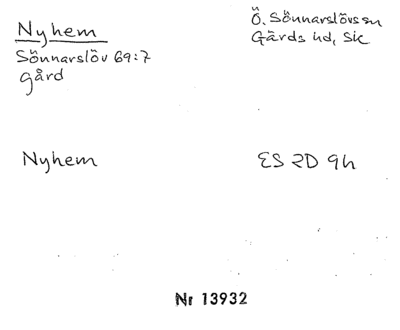 Nyhem
Sönnarslöv 69:7
gård
Ö. Sönnarslövs sn
Gärds hd, Sk
Nyhem
ES 2D 9h
Nr 13932